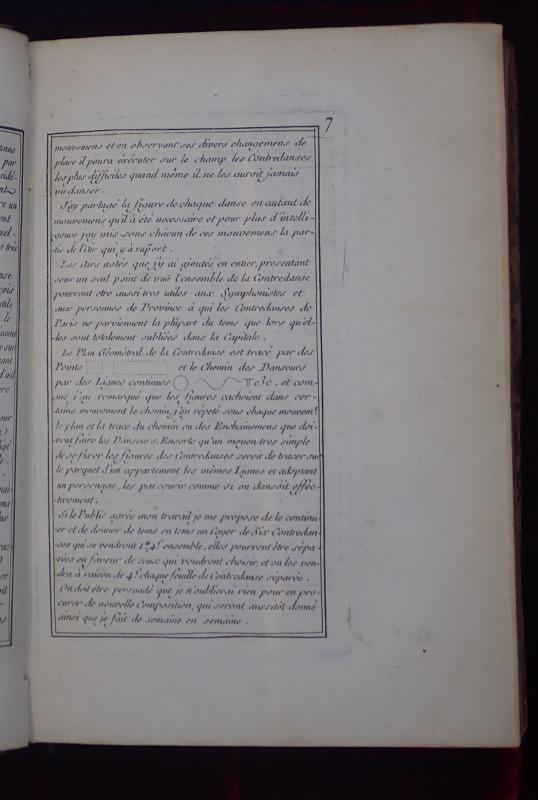 7
mouvemens et en observant ses divers changemens de
place il poura éxécuter sur le champ les Contredanses
les plus difficiles quand même il ne les auroit jamais
vu danser.
J'ay partagé la figure de chaque danse en autant de
mouvemens qu'il à été necessaire et pour plus d'intelli-
gence j'ay mis sous chacun de ces mouvemens la par-
tie de l'air qui y à raport.
Les Airs notés que j'y ai ajoutés en entier, presentant
sous un seul point de vuë l'ensemble de la Contredanse
pouront etre aussi tres utiles aux Symphonistes et
aux personnes de Province à qui les Contredanses de
Paris ne parviennent la plûpart du tems que lors qu'el-
-les sont totalement oubliées dans la Capitale.
Le Plan Géométral de la Contredanse est tracé par des
Points et le Chemin des Danseurs
par des Lignes continues &c. et com-
-me j'ai remarqué que les figures cachoient dans cer-
-tains mouvement le chemin, j'ai répeté sous chaque mouvemt.
le plan et la trace du chemin ou des Enchainemens que doi-
-vent faire les Danseurs, Ensorte qu'un moyen tres simple
de se graver les figures des Contredanses seroit de tracer sur
le parquet d'un appartement les mêmes Lignes et adoptant
un personage, les parcourir comme si on dansoit effec-
-tivement.
Si le Public agrée mon travail je me propose de le continu-
-er et de donner de tems en tems un Cayer de Six Contredan-
-ses qui se vendront 1.# 4.s ensemble, elles pourront être sépa-
-rées en faveur de ceux qui voudront choisir, et on les ven-
-dra à raison de 4.s chaque feuille de Contredanse séparée.
On doit être persuadé que je n'oublierai rien pour en pro-
-curer de nouvelle Composition, qui seront aussitôt donné
ainsi que je fait de semaine en semaine.